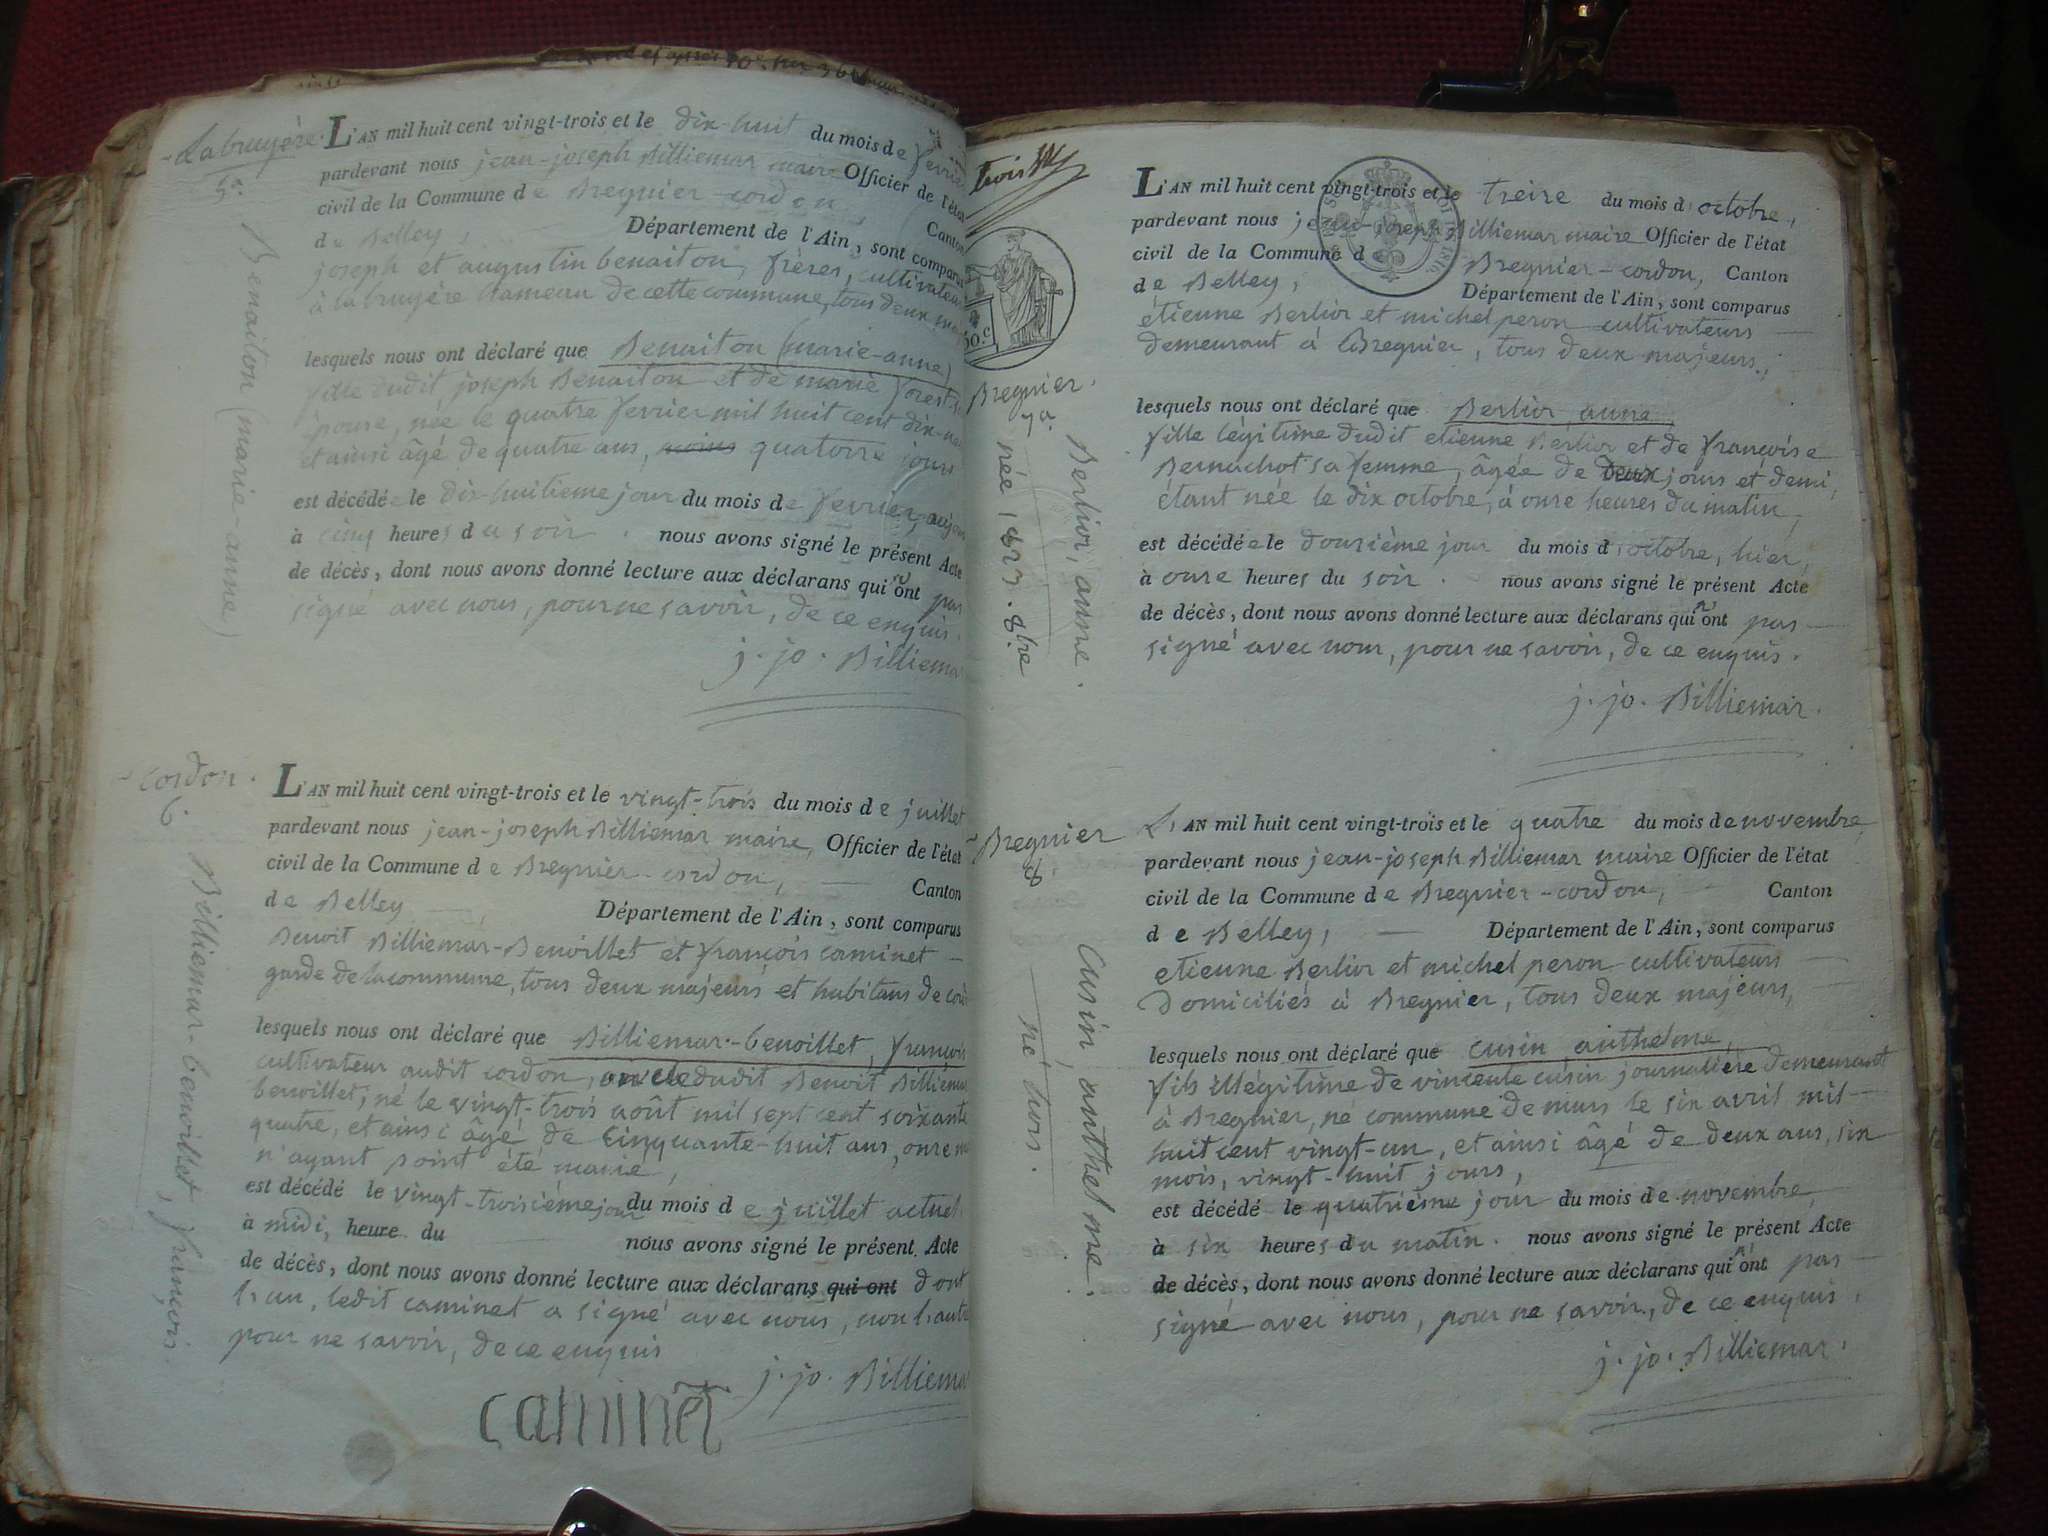 Labruyère.
5.e
Benaiton (marie-anne)
L'AN mil huit cent vingt-trois et le dix-huit du mois de fevrier
pardevant nous jean-joseph Billiemar maire Officier de l'état
civil de la Commune de Bregnier-cordon, Canton
de Belley, Département de l'Ain, sont comparus
joseph et augustin benaiton, frères, cultivateurs
à labruyère hameau de cette commune, tous deux
lesquels nous ont déclaré que Benaiton (marie-anne)
fille dudit joseph Benaiton et de marie forest
épouse, née le quatre fevrier mil huit cent dix-
et ainsi âgé de quatre ans, moins quatorze jours
est décédée le dix-huitieme jour du mois de fevrier,
à cinq heures du soir. nous avons signé le présent Acte
de décès, dont nous avons donné lecture aux déclarans qui n'ont pas
signé avec nous, pour ne savoir, de ce enquis.
j. jo. Billiemar
cordon.
6.
Billiemar-benoillet, françois
L'AN mil huit cent vingt-trois et le vingt-trois du mois de juillet
pardevant nous jean-joseph Billiemar maire, Officier de l'état
civil de la Commune de Bregnier-cordon, Canton
de Belley Département de l'Ain, sont comparus
Benoit Billiemar-Benoillet et françois caminet
garde de la commune, tous deux majeurs et habitans de
lesquels nous ont déclaré que Billiemar-benoillet, françois
cultivateur audit cordon, oncle dudit Benoit Billiemar
benoillet, né le vingt-trois août mil sept cent soixante
quatre, et ainsi âgé de cinquante-huit ans, onze
n'ayant point été marié,
est décédé le vingt-troisième jour du mois de juillet actuel
à midi, heure du nous avons signé le présent Acte
de décès, dont nous avons donné lecture aux déclarans qui ont dont
l'un, ledit caminet a signé avec nous, non l'autre
pour ne savoir, de ce enquis
j. jo. Billiemar
caminet
trois
50.c
Bregnier.
7.e
Berlior, anne.
née 1823. 8bre
L'AN mil huit cent vingt-trois et le treize du mois d'octobre,
pardevant nous jean-joseph Billiemar maire Officier de l'état
civil de la Commune de Bregnier-cordon, Canton
de Belley, Département de l'Ain, sont comparus
étienne Berlior et michel peron cultivateurs
demeurant à Bregnier, tous deux majeurs,
lesquels nous ont déclaré que Berlior anne
fille légitime dudit etienne Berlior et de françoise
Bernachot sa femme, âgée de deux jours et demi,
étant née le dix octobre, à onze heures du matin,
est décédée le douzième jour du mois d'octobre, hier,
à onze heures du soir. nous avons signé le présent Acte
de décès, dont nous avons donné lecture aux déclarans qui n'ont pas
signé avec nous, pour ne savoir, de ce enquis.
j. jo. Billiemar.
Bregnier
8.
Cusin anthelme.
L'AN mil huit cent vingt-trois et le quatre du mois de novembre
pardevant nous jean-joseph Billiemar maire Officier de l'état
civil de la Commune de Bregnier-cordon, Canton
de Belley, Département de l'Ain, sont comparus
etienne Berlior et michel peron cultivateurs
Domiciliés à Bregnier, tous deux majeurs,
lesquels nous ont déclaré que cusin anthelme,
fils illégitime de vincente cusin journalière demeurant
à Bregnier, né commune de murs le six avril mil-
huit cent vingt-un, et ainsi âgé de deux ans, six
mois, vingt-huit jours,
est décédé le quatrième jour du mois de novembre,
à six heures du matin. nous avons signé le présent Acte
de décès, dont nous avons donné lecture aux déclarans qui n'ont pas
signé avec nous, pour ne savoir, de ce enquis.
j. jo. Billiemar.